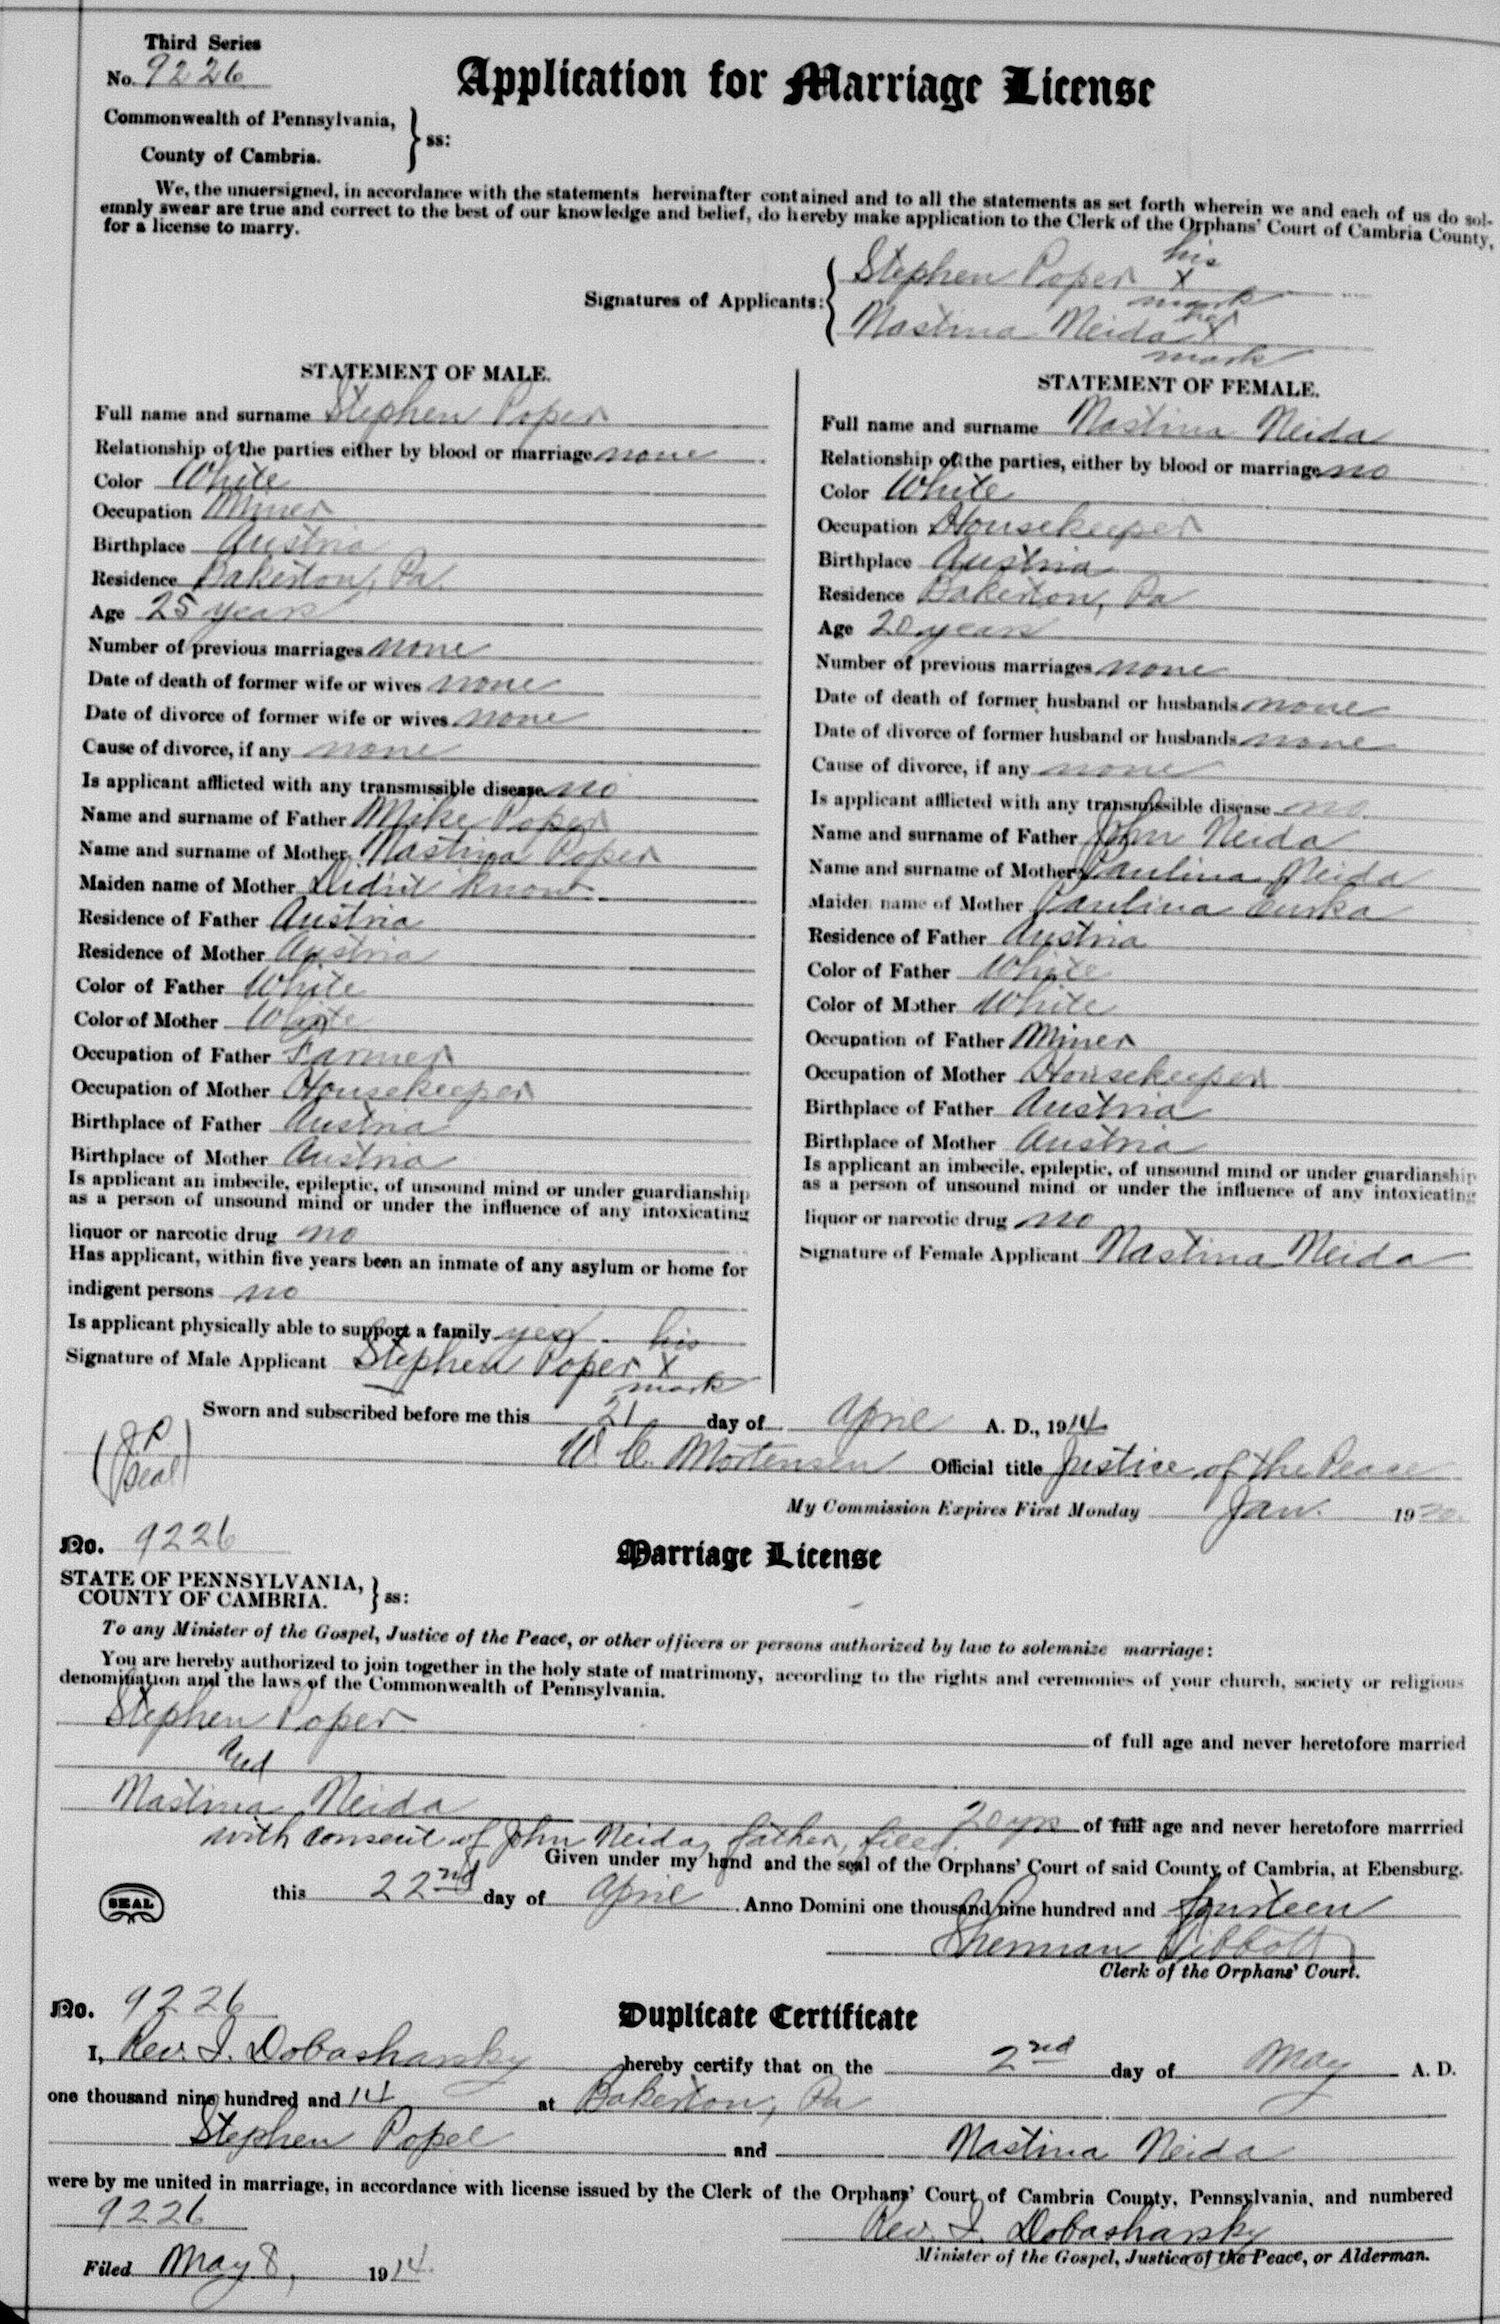 Third Series
No. 9226
Application for Marriage License
Commonwealth of Pennsylvania,
County of Cambria.
} ss:
We, the undersigned, in accordance with the statements hereinafter contained and to all the statements as set forth wherein we and each of us do sol-
emnly swear are true and correct to the best of our knowledge and belief, do hereby make application to the Clerk of the Orphans' Court of Cambria County,
for a license to marry.
his
Signatures of Applicants: { Stephen Poper X
mark
her
Nastina Neida X
mark
STATEMENT OF MALE.
Full name and surname Stephen Poper
Relationship of the parties either by blood or marriage none
Color White
Occupation Miner
Birthplace Austria
Residence Bakerton, Pa.
Age 25 years
Number of previous marriages none
Date of death of former wife or wives none
Date of divorce of former wife or wives none
Cause of divorce, if any none
Is applicant afflicted with any transmissible disease no
Name and surname of Father Mike Poper
Name and surname of Mother Nastina Poper
Maiden name of Mother Didn't know
Residence of Father Austria
Residence of Mother Austria
Color of Father White
Color of Mother White
Occupation of Father Farmer
Occupation of Mother Housekeeper
Birthplace of Father Austria
Birthplace of Mother Austria
Is applicant an imbecile, epileptic, of unsound mind or under guardianship
as a person of unsound mind or under the influence of any intoxicating
liquor or narcotic drug no
Has applicant, within five years been an inmate of any asylum or home for
indigent persons no
Is applicant physically able to support a family yes his
Signature of Male Applicant Stephen Poper X
mark
STATEMENT OF FEMALE.
Full name and surname Nastina Neida
Relationship of the parties, either by blood or marriage no
Color White
Occupation Housekeeper
Birthplace Austria
Residence Bakerton, Pa
Age 20 years
Number of previous marriages none
Date of death of former husband or husbands none
Date of divorce of former husband or husbands none
Cause of divorce, if any none
Is applicant afflicted with any transmissible disease no
Name and surname of Father John Neida
Name and surname of Mother Paulina Neida
Maiden name of Mother Paulina Curka
Residence of Father Austria
Color of Father White
Color of Mother White
Occupation of Father Miner
Occupation of Mother Housekeeper
Birthplace of Father Austria
Birthplace of Mother Austria
Is applicant an imbecile, epileptic, of unsound mind or under guardianship
as a person of unsound mind or under the influence of any intoxicating
liquor or narcotic drug no
Signature of Female Applicant Nastina Neida
Sworn and subscribed before me this 21 day of April A. D., 1914
(J P Seal)
W. C. Mortensen Official title Justice of the Peace
My Commission Expires First Monday Jan. 1920.
No. 9226
Marriage License
STATE OF PENNSYLVANIA,
COUNTY OF CAMBRIA.
} ss:
To any Minister of the Gospel, Justice of the Peace, or other officers or persons authorized by law to solemnize marriage:
You are hereby authorized to join together in the holy state of matrimony, according to the rights and ceremonies of your church, society or religious
denomination and the laws of the Commonwealth of Pennsylvania.
Stephen Poper
of full age and never heretofore married
and
Nastina Neida
20 yrs of full age and never heretofore marrried
with consent of John Neida, father, filed.
Given under my hand and the seal of the Orphans' Court of said County of Cambria, at Ebensburg.
SEAL
this 22nd day of April Anno Domini one thousand nine hundred and fourteen
Sherman Tibbott
Clerk of the Orphans' Court.
No. 9226
Duplicate Certificate
I, Rev. I. Dobashansky hereby certify that on the 2nd day of May A. D.
one thousand nine hundred and 14 at Bakerton, Pa
Stephen Popel and Nastina Neida
were by me united in marriage, in accordance with license issued by the Clerk of the Orphans' Court of Cambria County, Pennsylvania, and numbered
9226
Rev. I. Dobashansky
Minister of the Gospel, Justice of the Peace, or Alderman.
Filed May 8, 1914.